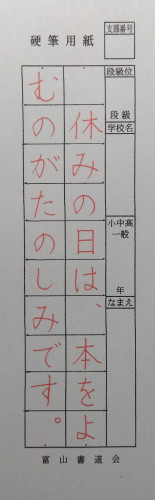 硬筆用紙
支部番号
段級位
段級
学校名
小中高
一般
年
なまえ
休みの日は、本をよ
むのがたのしみです。
富山書道会